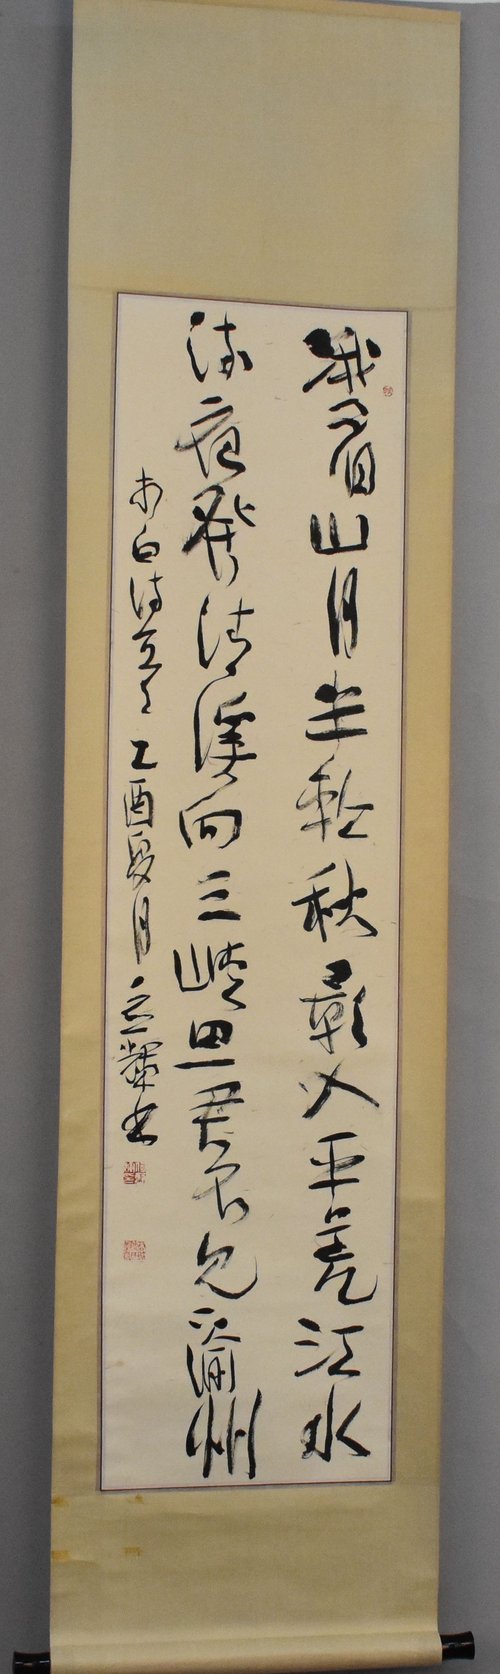 峨眉山月半輪秋影入平羌江水
流夜發清溪向三峽思君不見下渝州
李白詩一首乙酉夏月立